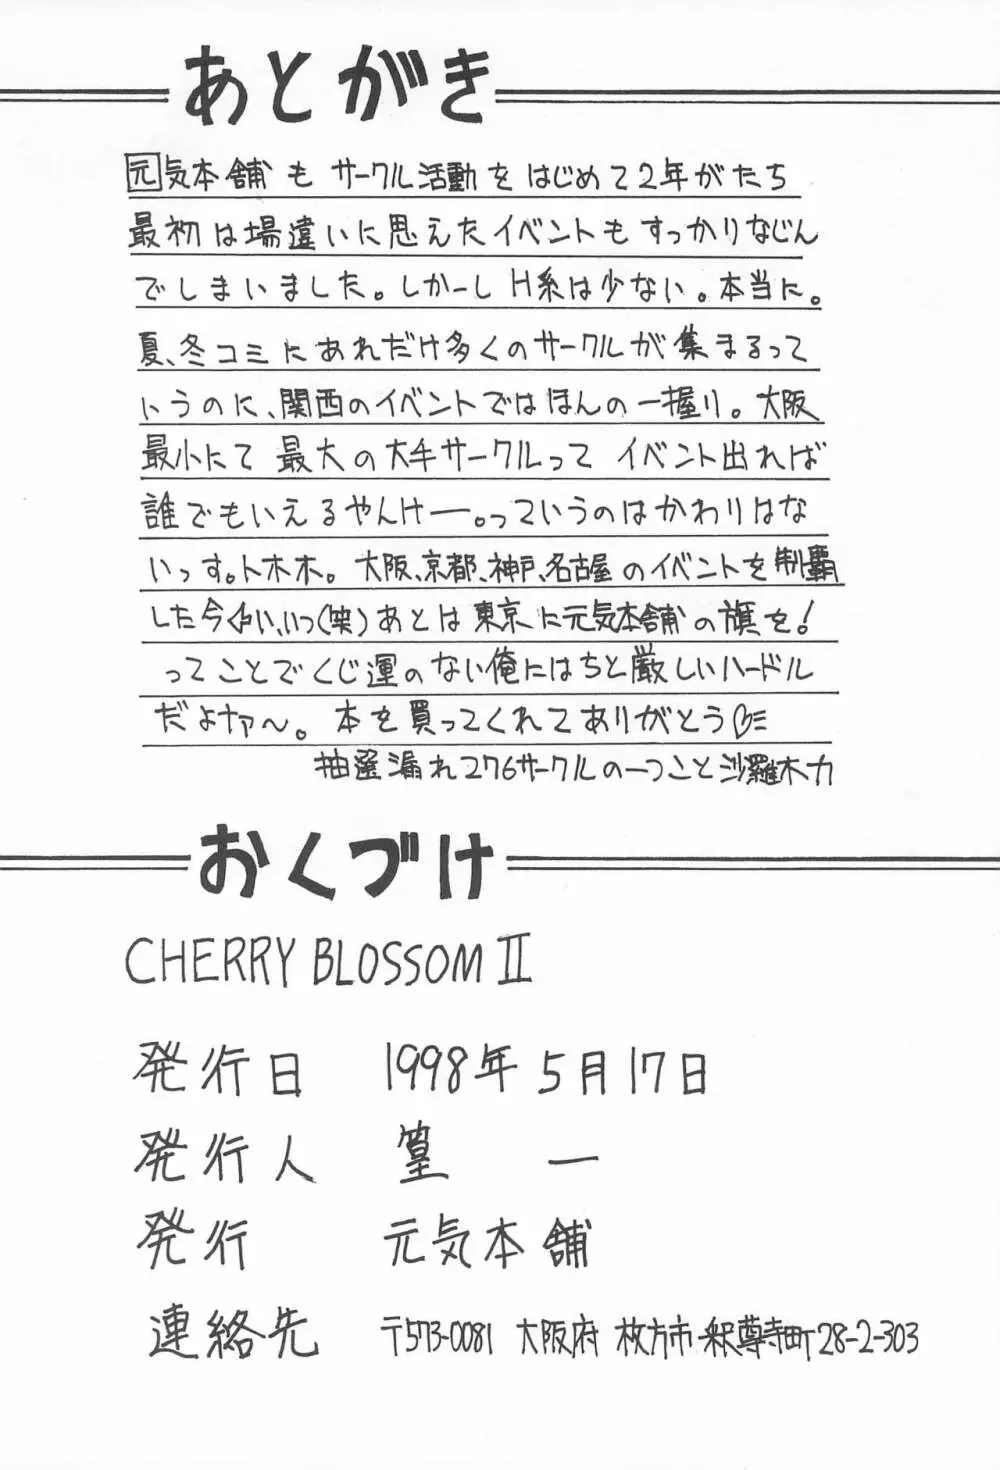 あとがき
元気本舗も サークル活動をはじめて2年がたち
最初は場違いに思えたイベントもすっかりなじん
でしまいました。しかーしH系は少ない。本当に。
夏、冬コミにあれだけ多くのサークルが集まるって
いうのに、関西のイベントではほんの一握り。大阪
最小にて 最大の大手サークルって イベント出れば
誰でもいえるやんけー。っていうのはかわりはな
いっす。トホホ。大阪、京都、神戸、名古屋のイベントを制覇
した今(笑)あとは東京に元気本舗の旗を!
ってことでくじ運のない俺にはちと厳しいハードル
だよナァ〜。本を買ってくれてありがとう
抽選漏れ276サークルの一つこと 沙羅木力
おくづけ
CHERRY BLOSSOM II
発行日 1998年5月17日
発行人 篁 一
発行 元気本舗
連絡先 〒573-0081 大阪府 枚方市 釈尊寺町28-2-303